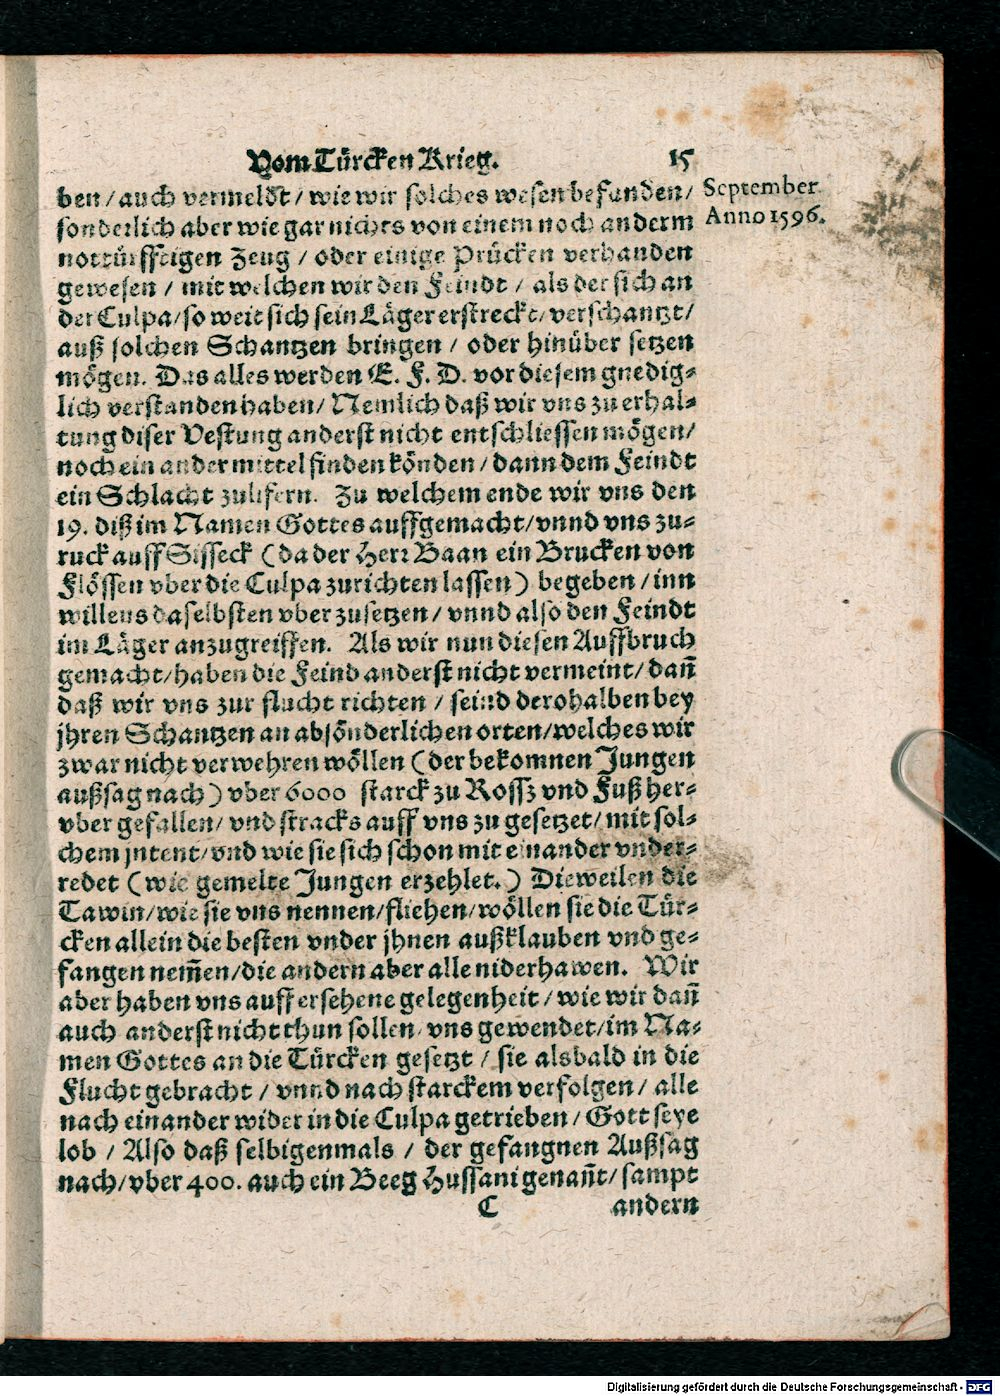 Vom Türcken Krieg. 15
ben / auch vermeldt / wie wir solches wesen befunden /
September
sonderlich aber wie gar nichts von einem noch anderm
Anno 1596.
nottürfftigen Zeug / oder einige Prücken verhanden
gewesen / mit welchen wir den Feindt / als der sich an
der Culpa / so weit sich sein Läger erstreckt / verschantzt /
auß solchen Schantzen bringen / oder hinüber setzen
mögen. Das alles werden E. F. D. vor diesem gnedig-
lich verstanden haben / Nemlich daß wir vns zu erhal-
tung diser Vestung anderst nicht entschliessen mögen /
noch ein ander mittel finden könden / dann dem Feindt
ein Schlacht zulifern. Zu welchem ende wir vns den
19. diß im Namen Gottes auffgemacht / vnnd vns zu-
ruck auff Sisseck ( da der Herr Baan ein Brucken von
Flössen vber die Culpa zurichten lassen ) begeben / inn
willens daselbsten vber zusetzen / vnnd also den Feindt
im Läger anzugreiffen. Als wir nun diesen Auffbruch
gemacht / haben die Feind anderst nicht vermeint / dañ
daß wir vns zur flucht richten / seind derohalben bey
jhren Schantzen an absönderlichen orten / welches wir
zwar nicht verwehren wöllen ( der bekomnen Jungen
außsag nach ) vber 6000 starck zu Rossz vnd Fuß her-
vber gefallen / vnd stracks auff vns zu gesetzet / mit sol-
chem jntent / vnd wie sie sich schon mit einander vnder-
redet ( wie gemelte Jungen erzehlet. ) Dieweilen die
Tawin / wie sie vns nennen / fliehen / wöllen sie die Tür-
cken allein die besten vnder jhnen außklauben vnd ge-
fangen nem̃en / die andern aber alle niderhawen. Wir
aber haben vns auff ersehene gelegenheit / wie wir dañ
auch anderst nicht thun sollen / vns gewendet / im Na-
men Gottes an die Türcken gesetzt / sie alsbald in die
Flucht gebracht / vnnd nach starckem verfolgen / alle
nach einander wider in die Culpa getrieben / Gott seye
lob / Also daß selbigenmals / der gefangnen Außsag
nach / vber 400. auch ein Beeg Hussani genañt / sampt
C andern
Digitalisierung gefördert durch die Deutsche Forschungsgemeinschaft - DFG